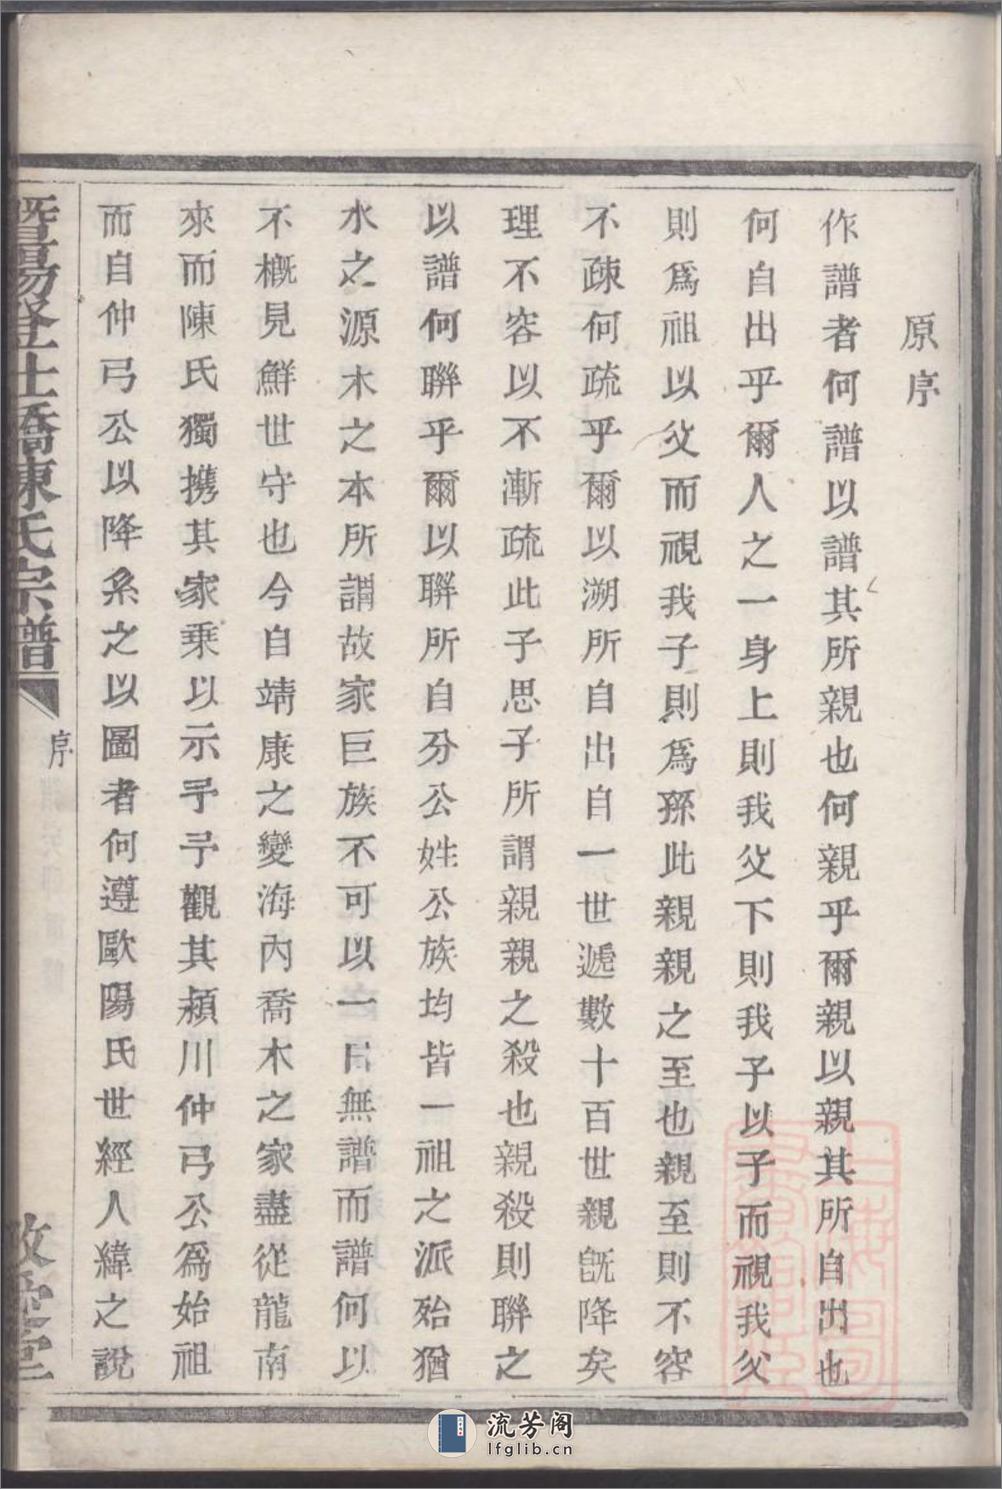 原序
作譜者何譜以譜其所親也何親乎爾親以親其所自出也
何自出乎爾人之一身上則我父下則我子以子而視我父
則爲祖以父而視我子則爲孫此親親之至也親至則不容
不疎何疏乎爾以溯所自出自一世遞數十百世親旣降矣
理不容以不漸疏此子思子所謂親親之殺也親殺則聯之
以譜何聯乎爾以聯所自分公姓公族均皆一祖之派殆猶
水之源木之本所謂故家巨族不可以一日無譜而譜何以
不概見鮮世守也今自靖康之變海內喬木之家盡從龍南
來而陳氏獨携其家乘以示予予觀其潁川仲弓公爲始祖
而自仲弓公以降系之以圖者何遵歐陽氏世經人緯之說
暨陽登仕橋陳氏宗譜
序
流芳阁
lfglib.cn